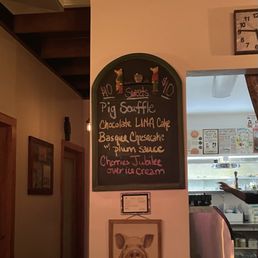 $10 Sweets $10
Pig Souffle
Chocolate LINA Cake
Basque Cheesecake
w/ plum sauce
Cherries Jubilee
over ice cream